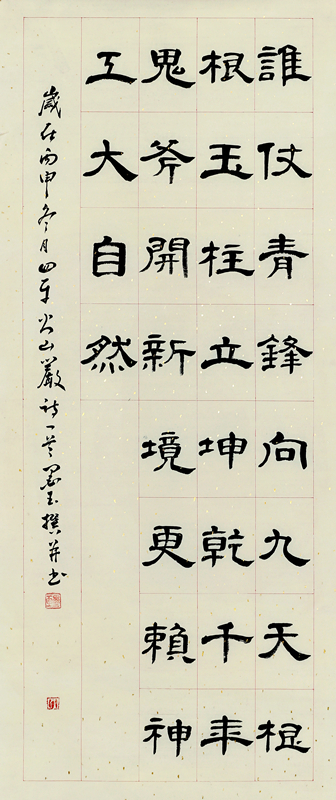 誰仗青鋒向九天棍
根玉柱立坤乾千年
鬼斧開新境更賴神
工大自然
歲在丙申冬月 山巖詩一首 玉撰并書